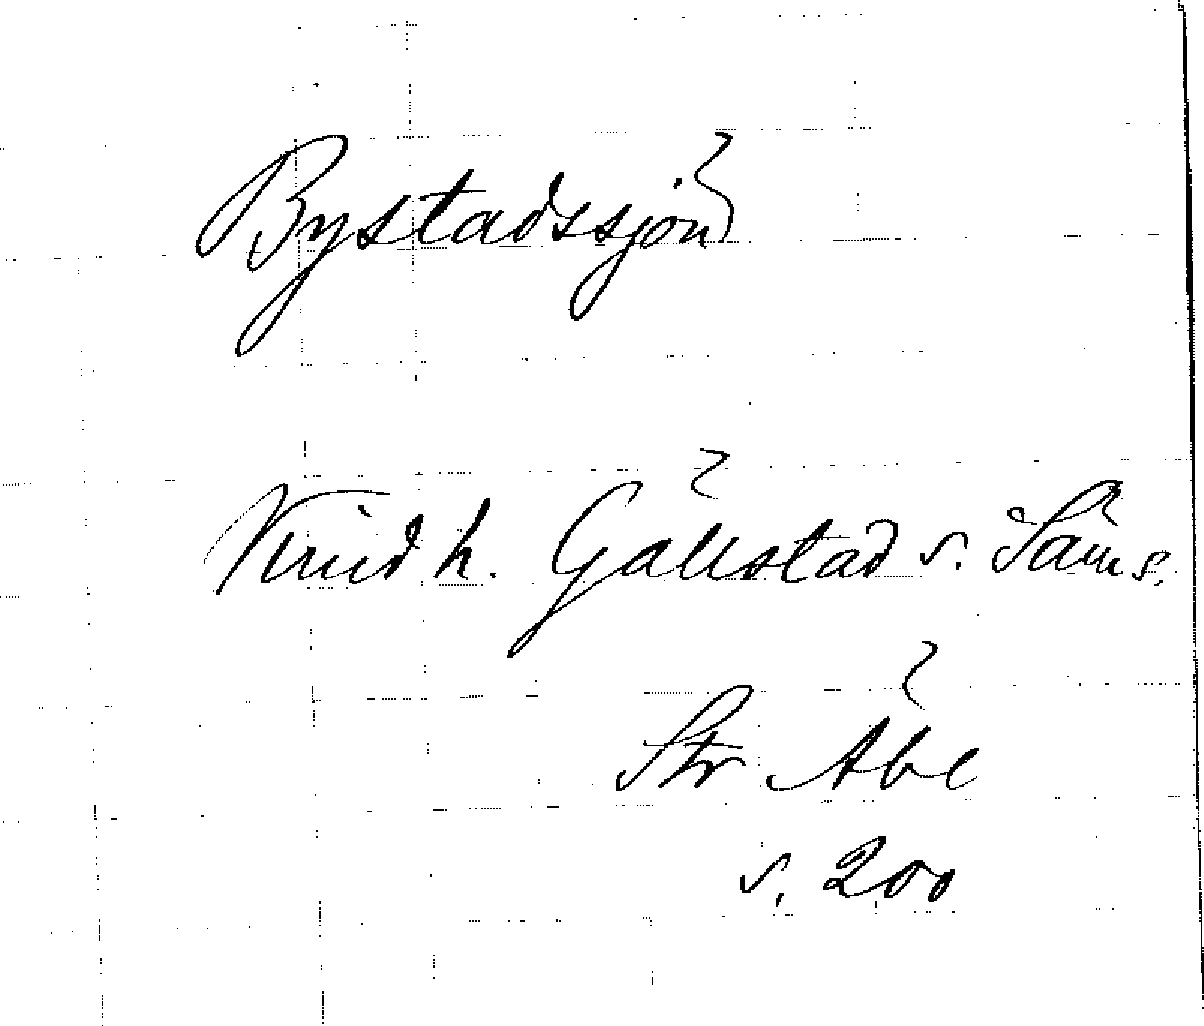 Bystadssjön
Kind h. Gällstad s. Säms.
Str Abe
s. 200